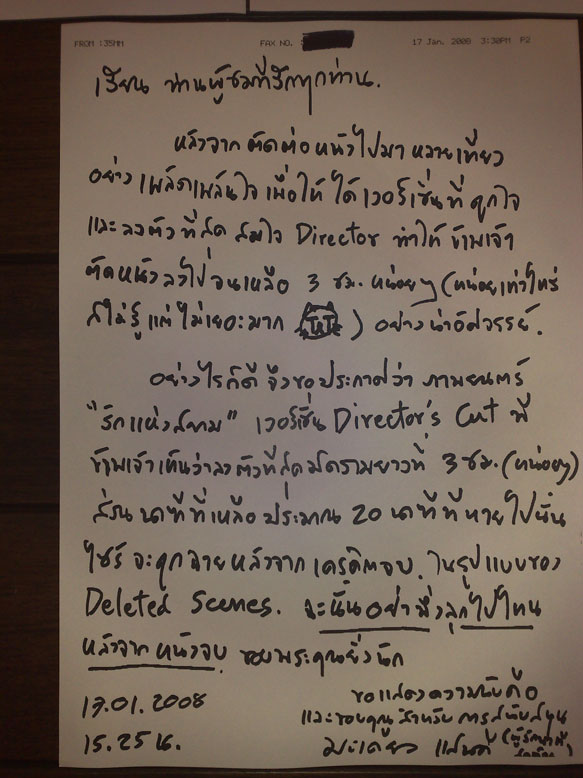 FROM :35MM FAX NO. 17 Jan. 2008 3:30PM P2
เรียน ท่านผู้ชมที่รักทุกท่าน.
หลังจาก ตัดต่อหนังไปมา หลายเที่ยว
อย่าง เพลิดเพลินใจ เพื่อให้ ได้ เวอร์ชั่น ที่ ถูกใจ
และ ลงตัว ที่สุด สมใจ Director ทำให้ ข้าพเจ้า
ตัดหนังลงไป จนเหลือ 3 ชม. หน่อยๆ (หน่อยเท่าไหร่
ก็ไม่รู้ แต่ ไม่เยอะมาก ) อย่างน่าอัศจรรย์.
อย่างไรก็ดี จึงขอประกาศว่า ภาพยนตร์
"รักแห่งสยาม" เวอร์ชั่น Director's Cut ที่
ข้าพเจ้าเห็นว่าลงตัวที่สุด มีความยาวที่ 3 ชม. (หน่อยๆ)
ส่วน นาทีที่เหลือ ประมาณ 20 นาทีที่หายไปนั้น
ไซร้ จะถูกฉายหลังจาก เครดิตจบ. ในรูปแบบของ
Deleted Scenes. ฉะนั้นอย่าพึ่งลุกไปไหน
หลังจาก หนังจบ. ขอบพระคุณยิ่งนัก
17.01.2008
15.25 น.
ขอแสดงความนับถือ
และขอบคุณสำหรับ การสนับสนุน
มะเดี่ยว